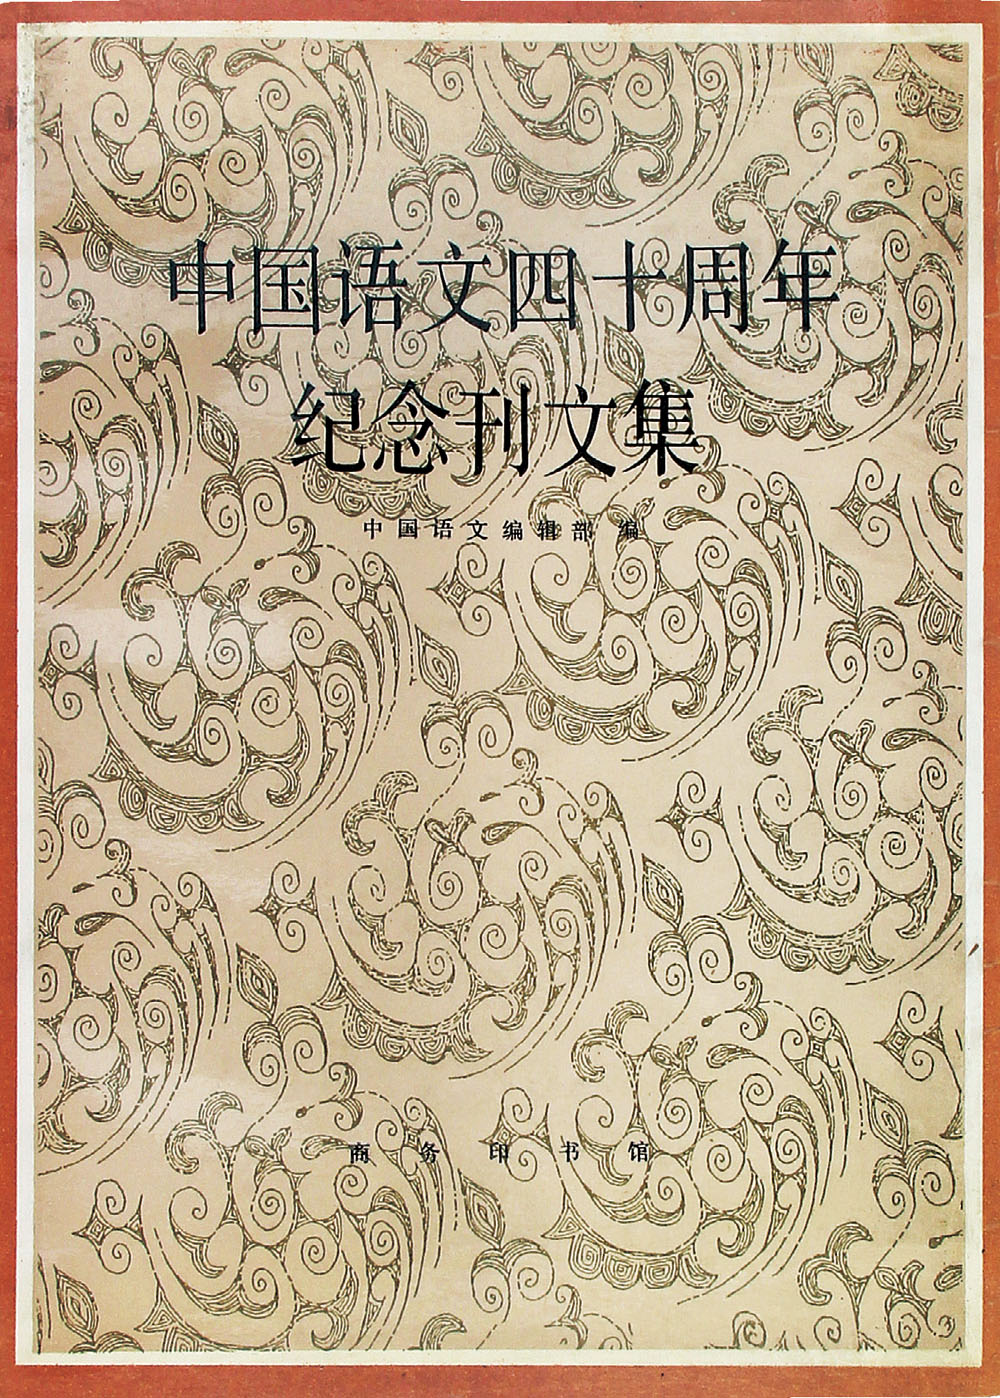 中国语文四十周年
纪念刊文集
中国语文编辑部 编
商务印书馆